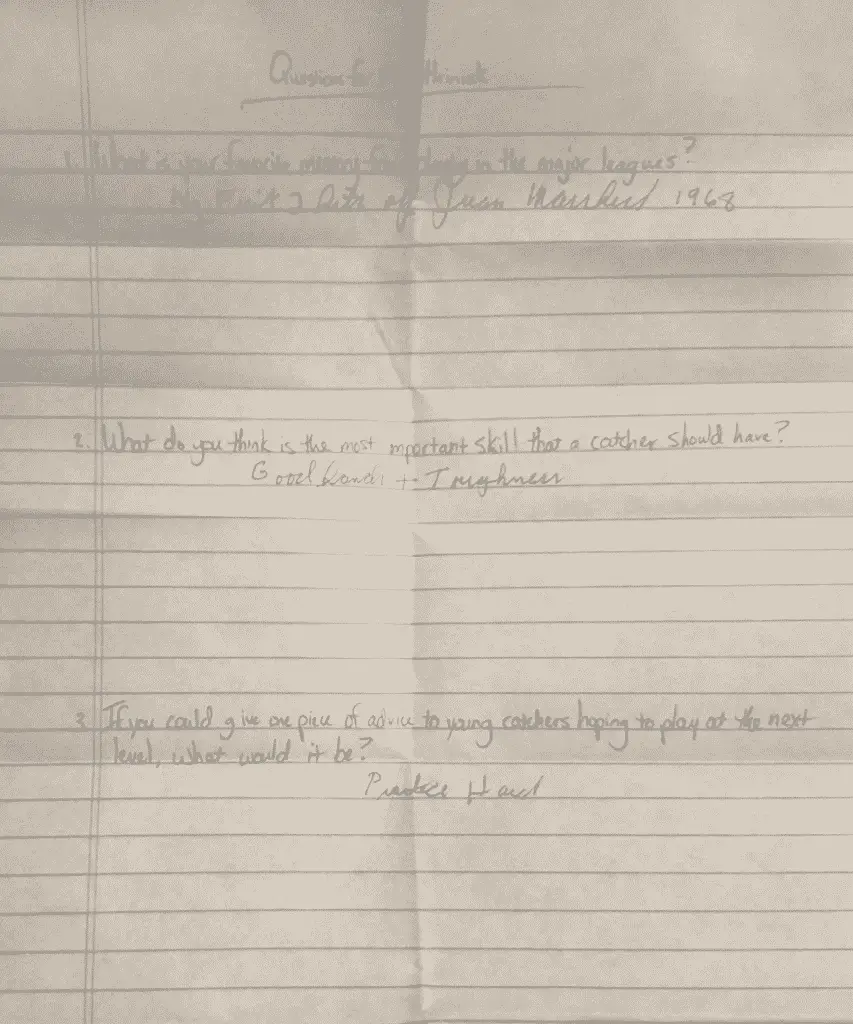 Question for
1. What is your favorite memory from playing in the major leagues?
My First 2 hits off Juan Marichal 1968
2. What do you think is the most mportant skill that a catcher should have?
Good hands + Toughness
3. If you could give one piece of advice to young catchers hoping to play at the next
level, what would it be?
Practice Hard